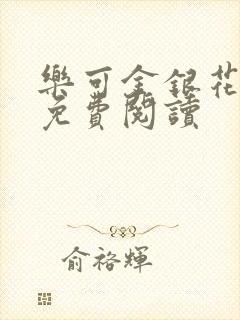 樂可金銀花
免費閱讀
俞裕輝